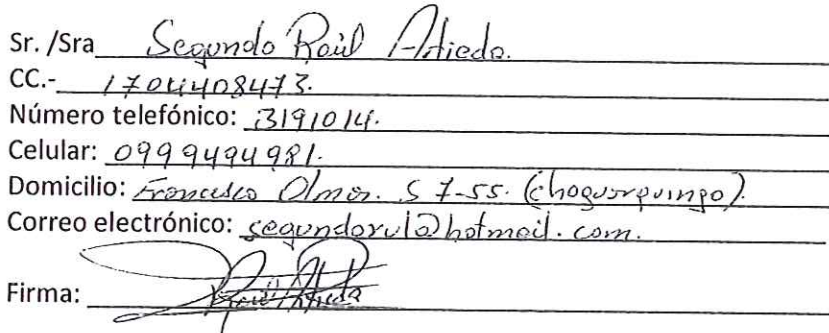 Sr. /Sra Segundo Raúl Artieda.
CC.- 1704408473.
Número telefónico: 3191014.
Celular: 0999494981.
Domicilio: Francisco Olmos. S 7-55. (Choguarquingo).
Correo electrónico: segundorul@hotmail.com.
Firma: Raúl Artieda